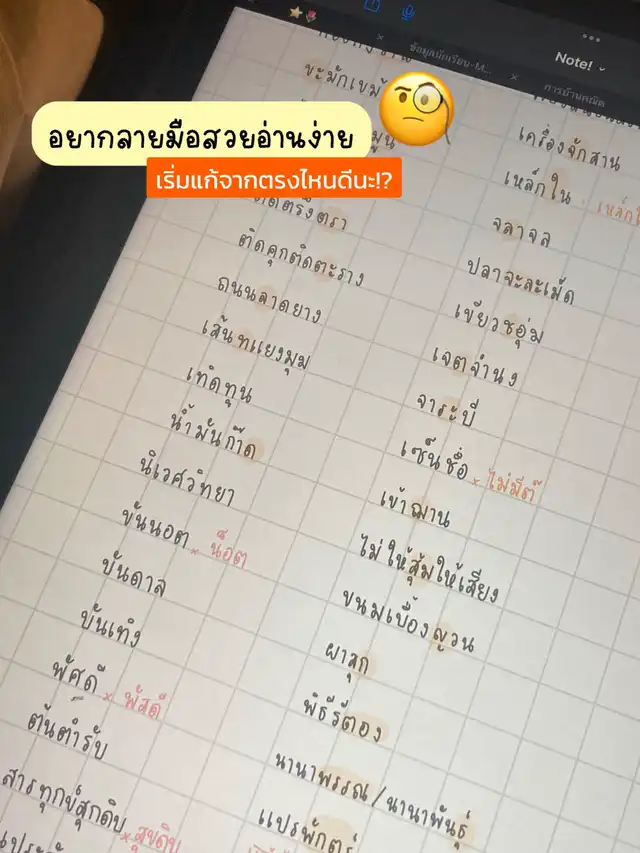 ข้อมูลนักเรียน-M...
Note!
การบ้านคณิต
อยากลายมือสวยอ่านง่าย
เริ่มแก้จากตรงไหนดีนะ!?
ติดคุกติดตะราง
ถนนลาดยาง
เส้นทแยงมุม
เทิดทูน
น้ำมันก๊าด
นิเวศวิทยา
ขันนอต × น็อต
บันดาล
บันเทิง
พัศดี × พัสดี
ต้นตำรับ
สารทุกข์สุกดิบ × สุขดิบ
เครื่องจักสาน
เหล็กใน
จลาจล
ปลาจะละเม็ด
เขียวชอุ่ม
เจตจำนง
จาระบี
เซ็นชื่อ × ไม่มีต์
เข้าฌาน
ไม่ให้สุ้มให้เสียง
ขนมเบื้องญวน
ผาสุก
พิธีรีตอง
นานาพรรณ/นานาพันธุ์